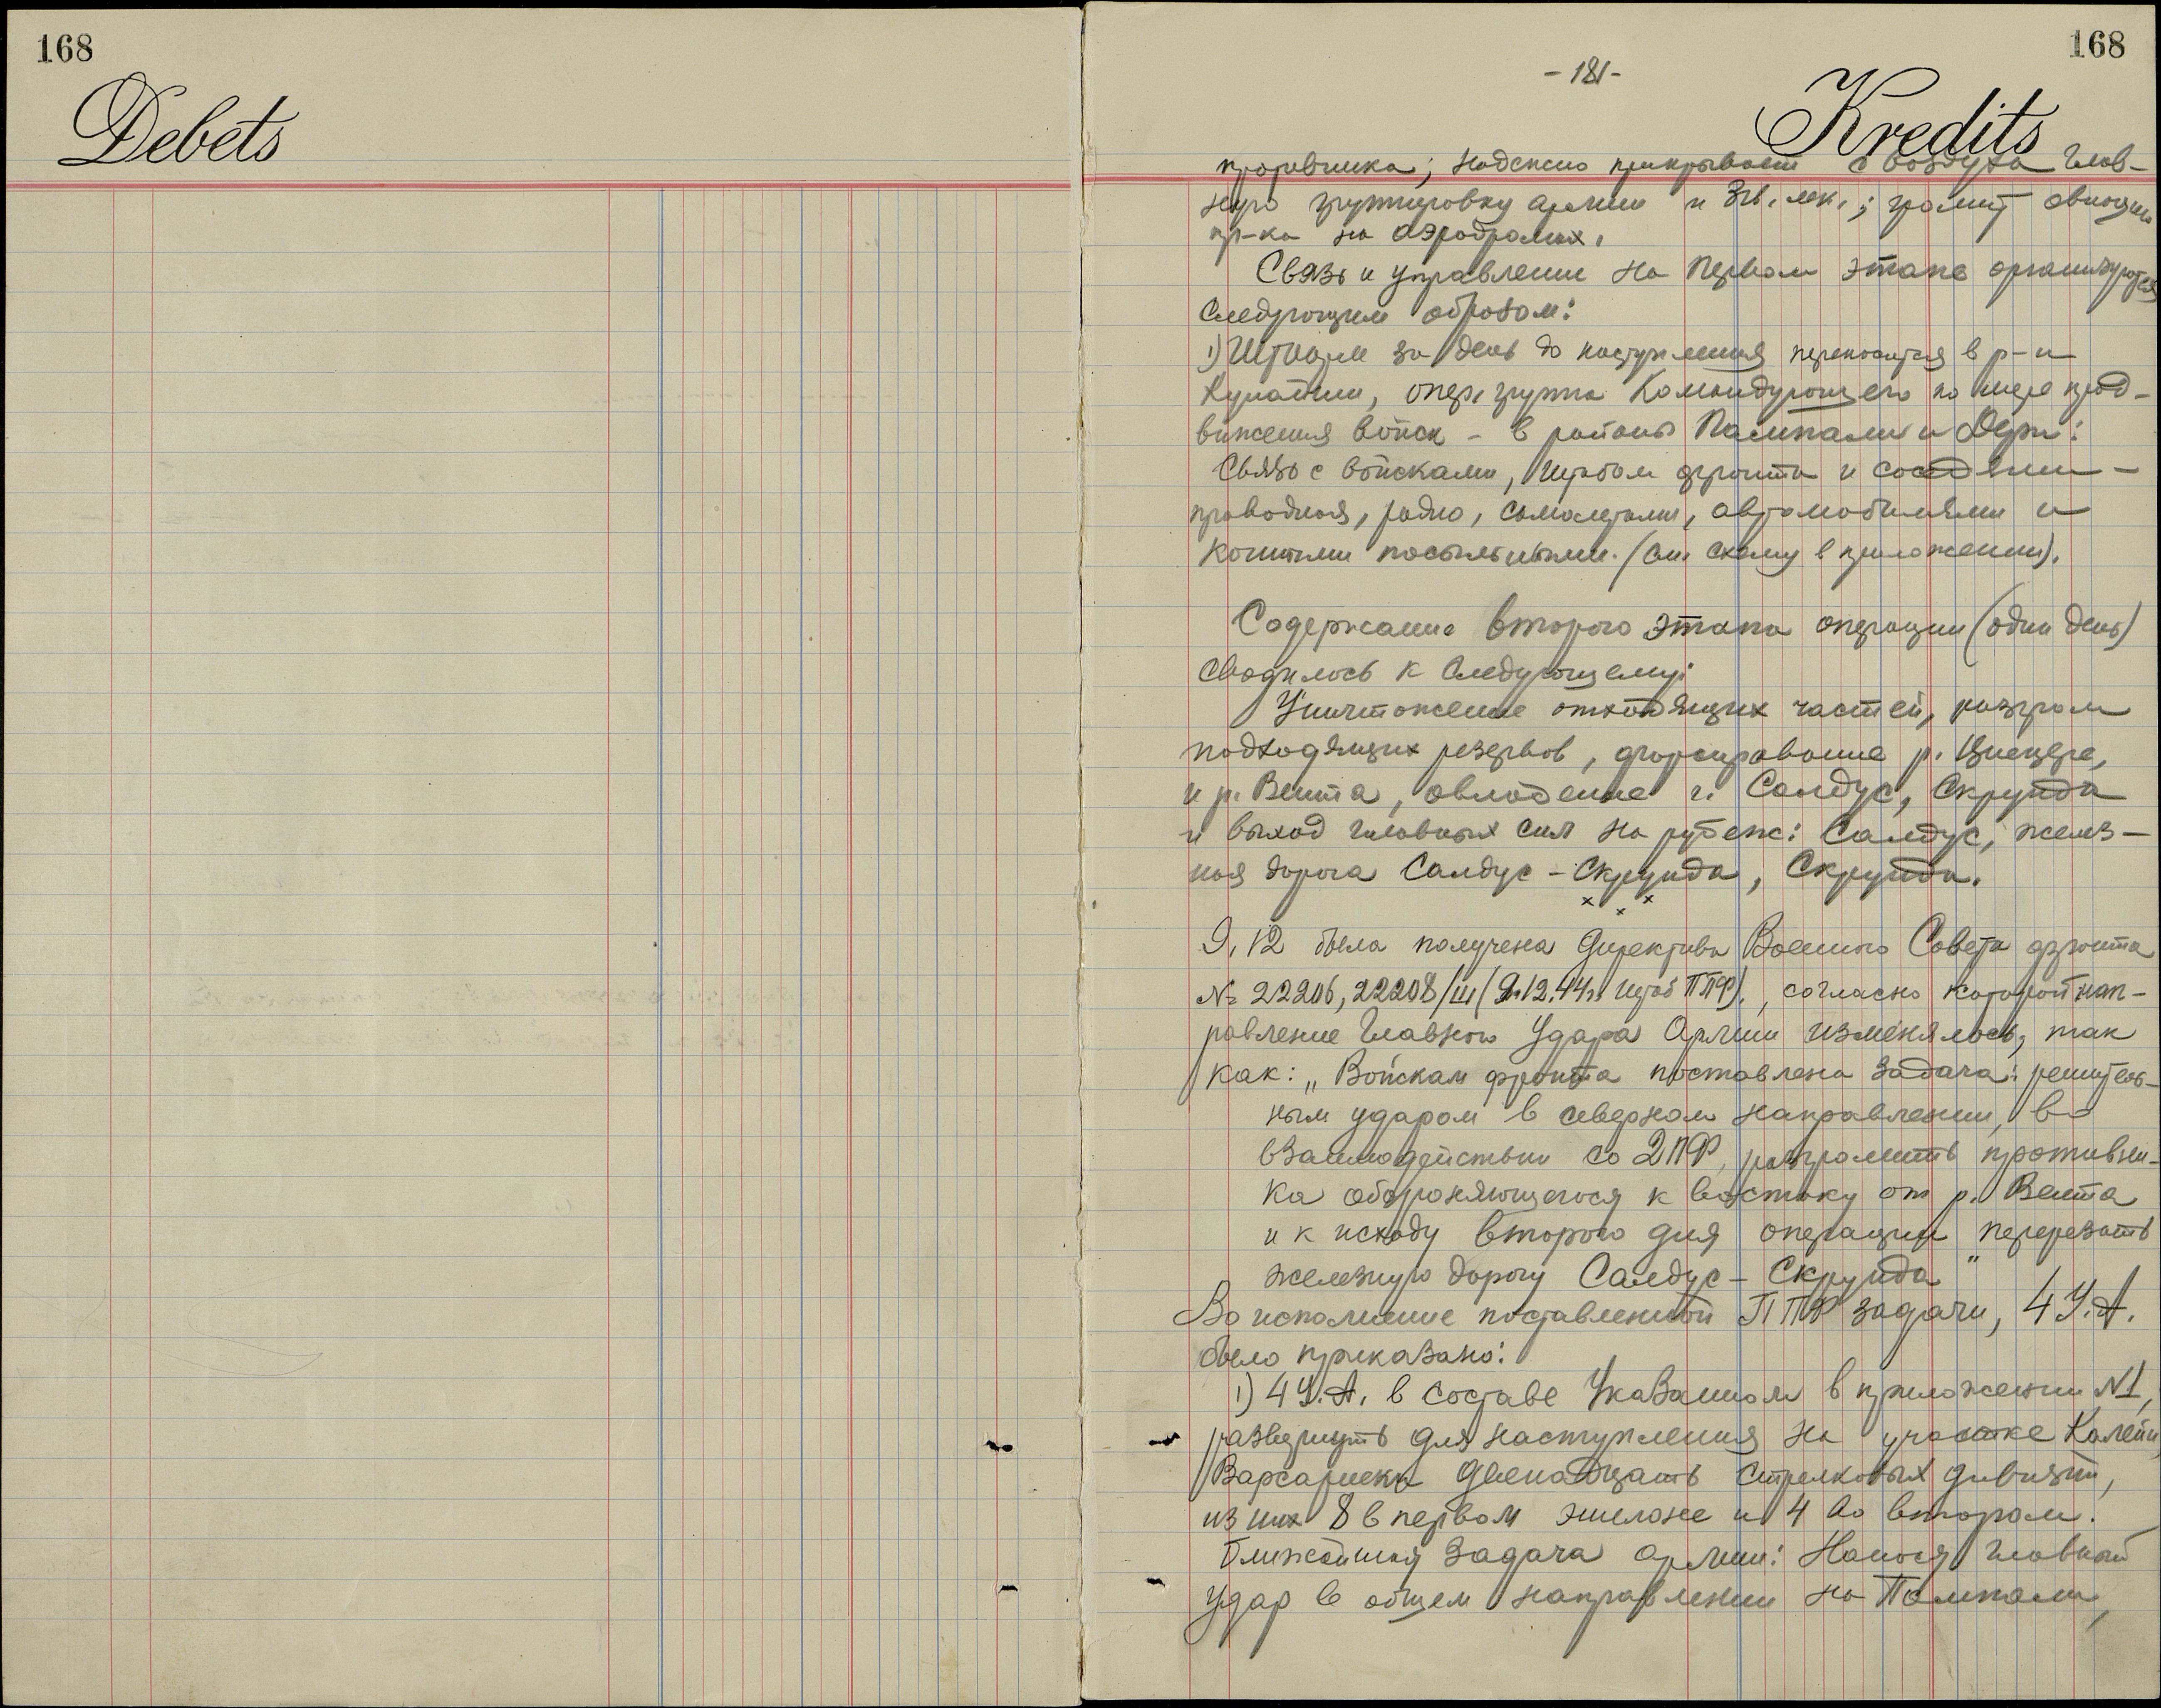 168
Debets
168
- 181 -
Kredits
противника; надежно прикрывает с воздуха глав-
ную группировку армии и 3 гв. мк.; громит авиацию
пр-ка на аэродромах.
Связь и управление на первом этапе организуются
следующим образом:
1) Штарм за день до наступления переносится в р-н
опер. группа Командующего по мере прод-
вижения войск - в районы Пампали и
Связь с войсками, штабом фронта и соседями -
проводная, радио, самолетами, автомобилями и
конными посыльными. (см. схему в приложении).
Содержание второго этапа операции (один день)
сводилось к следующему:
Уничтожение отходящих частей, разгром
подходящих резервов, форсирование р. Циецере,
и р. Вента, овладение г. Салдус, Скрунда
и выход главных сил на рубеж: Салдус, желез-
ная дорога Салдус - Скрунда, Скрунда.
х х х
9.12 была получена Директива Военного Совета фронта
№ 22206, 22208/ш (9.12.44 г. Штаб ППФ), согласно которой нап-
равление Главного Удара Армии изменялось, так
как: „Войскам фронта поставлена задача: решитель-
ным ударом в северном направлении, во
взаимодействии со 2ПФ, разгромить противни-
ка обороняющегося к востоку от р. Вента
и к исходу второго дня операции перерезать
железную дорогу Салдус - Скрунда"
Во исполнение поставленной ППФ задачи, 4 У.А.
было приказано:
1) 4 У.А. в составе Указанном в приложении №1,
развернуть для наступления на участке Калейи,
двенадцать стрелковых дивизий,
из них 8 в первом эшелоне и 4 во втором.
Ближайшая задача армии: Нанося главный
удар в общем направлении на Пампали,